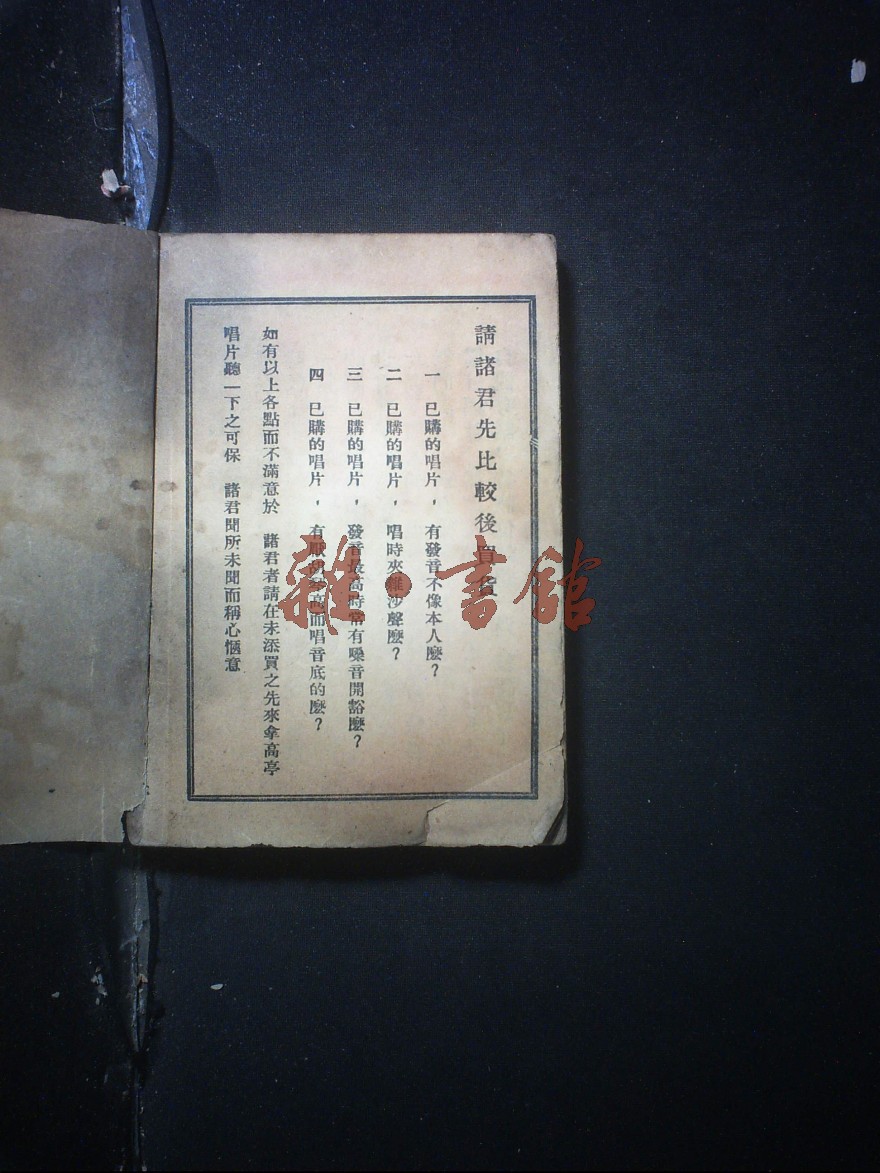 請諸君先比較後買貨
一 已購的唱片，有發音不像本人麽？
二 已購的唱片，唱時夾雜沙聲麽？
三 已購的唱片，發音最高時常有噪音開豁麽？
四 已購的唱片，有厭胡琴高而唱音底的麽？
如有以上各點而不滿意於 諸君者請在未添買之先來拿高亭
唱片聽一下之可保 諸君聞所未聞而稱心愜意
雜·書館